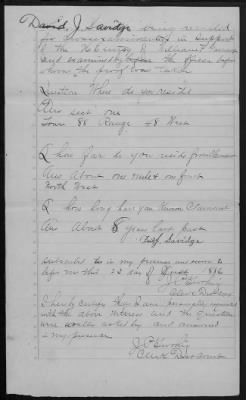 David J. Savidge being recalled
for cross examination in support
of the H Entry of William
and examined by before the officer before
whom the proof was taken
Question Where do you reside
Ans Sect one
Town 88 Range 48 West
Q how far do you reside from Claimant
Ans About one mile & one fourth
North West
Q how long have you known Claimant
Ans About 8 years last past
Savidge
Subscribed to in my presence and sworn to
before me this 23 day of 1876
Clerk Dist Court
I hereby certify that I am
with the above witness and the questions
were asked by and answered
in my presence
Clerk Dist Court